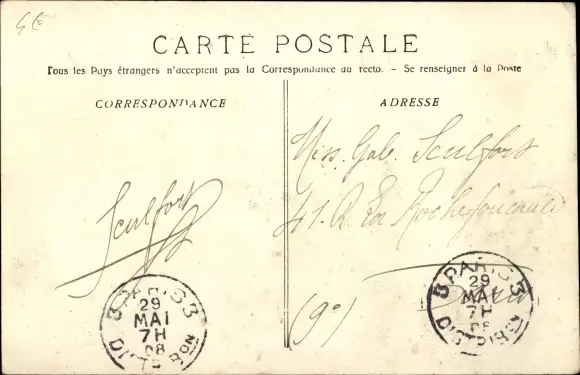 4€
CARTE POSTALE
Tous les Pays étrangers n'acceptent pas la Correspondance au recto. - Se renseigner à la Poste
CORRESPONDANCE
ADRESSE
Miss. Gab. Sculfort
41. R. La Rochefoucauld
Paris
(9e)
Sculfort
PARIS 3
29
MAI
7H
08
DISTRIBON
PARIS 3
29
MAI
7H
08
DISTRIBON